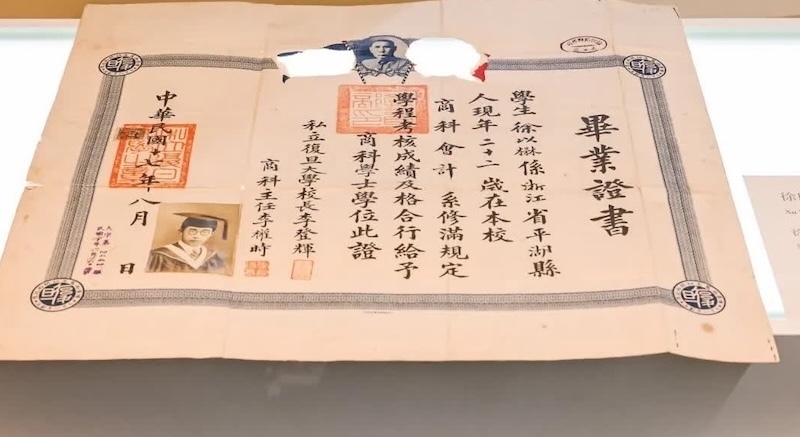 畢業證書
學生徐以楙係浙江省平湖縣
人現年二十二歲在本校
商科會計系修滿規定
學程考核成績及格合行給予
商科學士學位此證
私立復旦大學校長李登輝
商科主任李權時
中華民國十七年八月 日